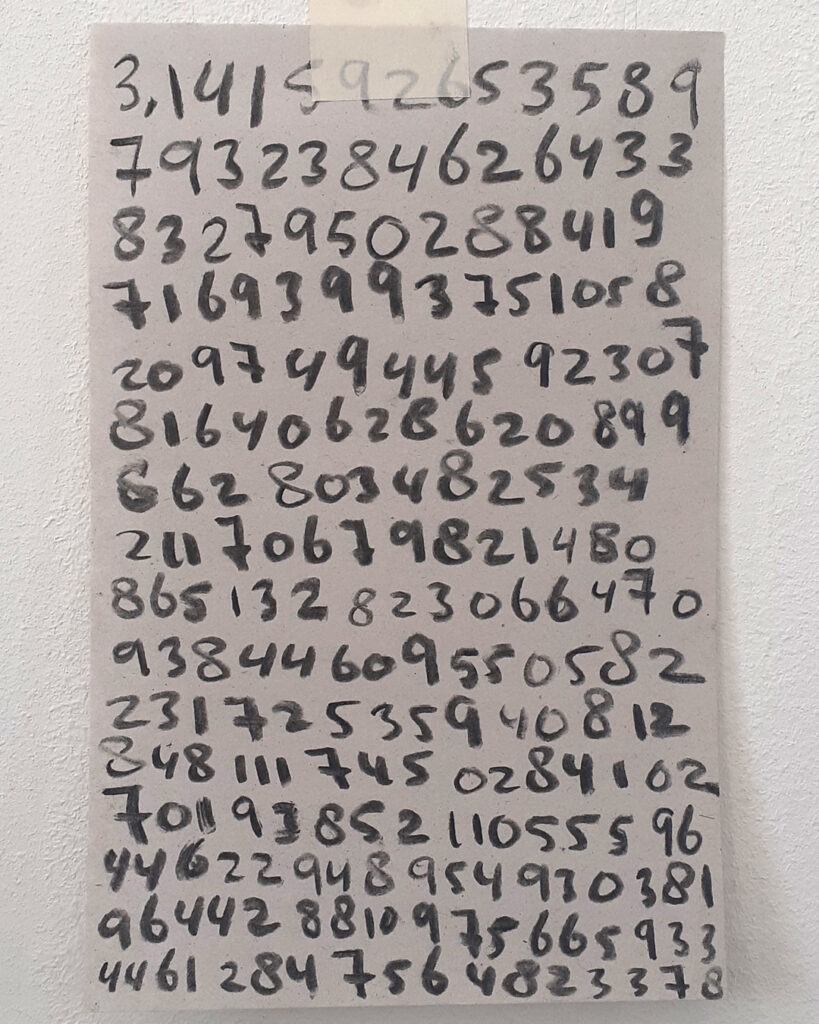 3,141592653589
7932384626433
8327950288419
71693993751058
209749445 92307
81640628620 899
662 8034482534
2117067982 1480
865132 823066470
9384460955058 2
2317253594081 2
848111745 02841 02
70193852 11055596
446229489549 30381
96442 88109 75665933
44612847564823378